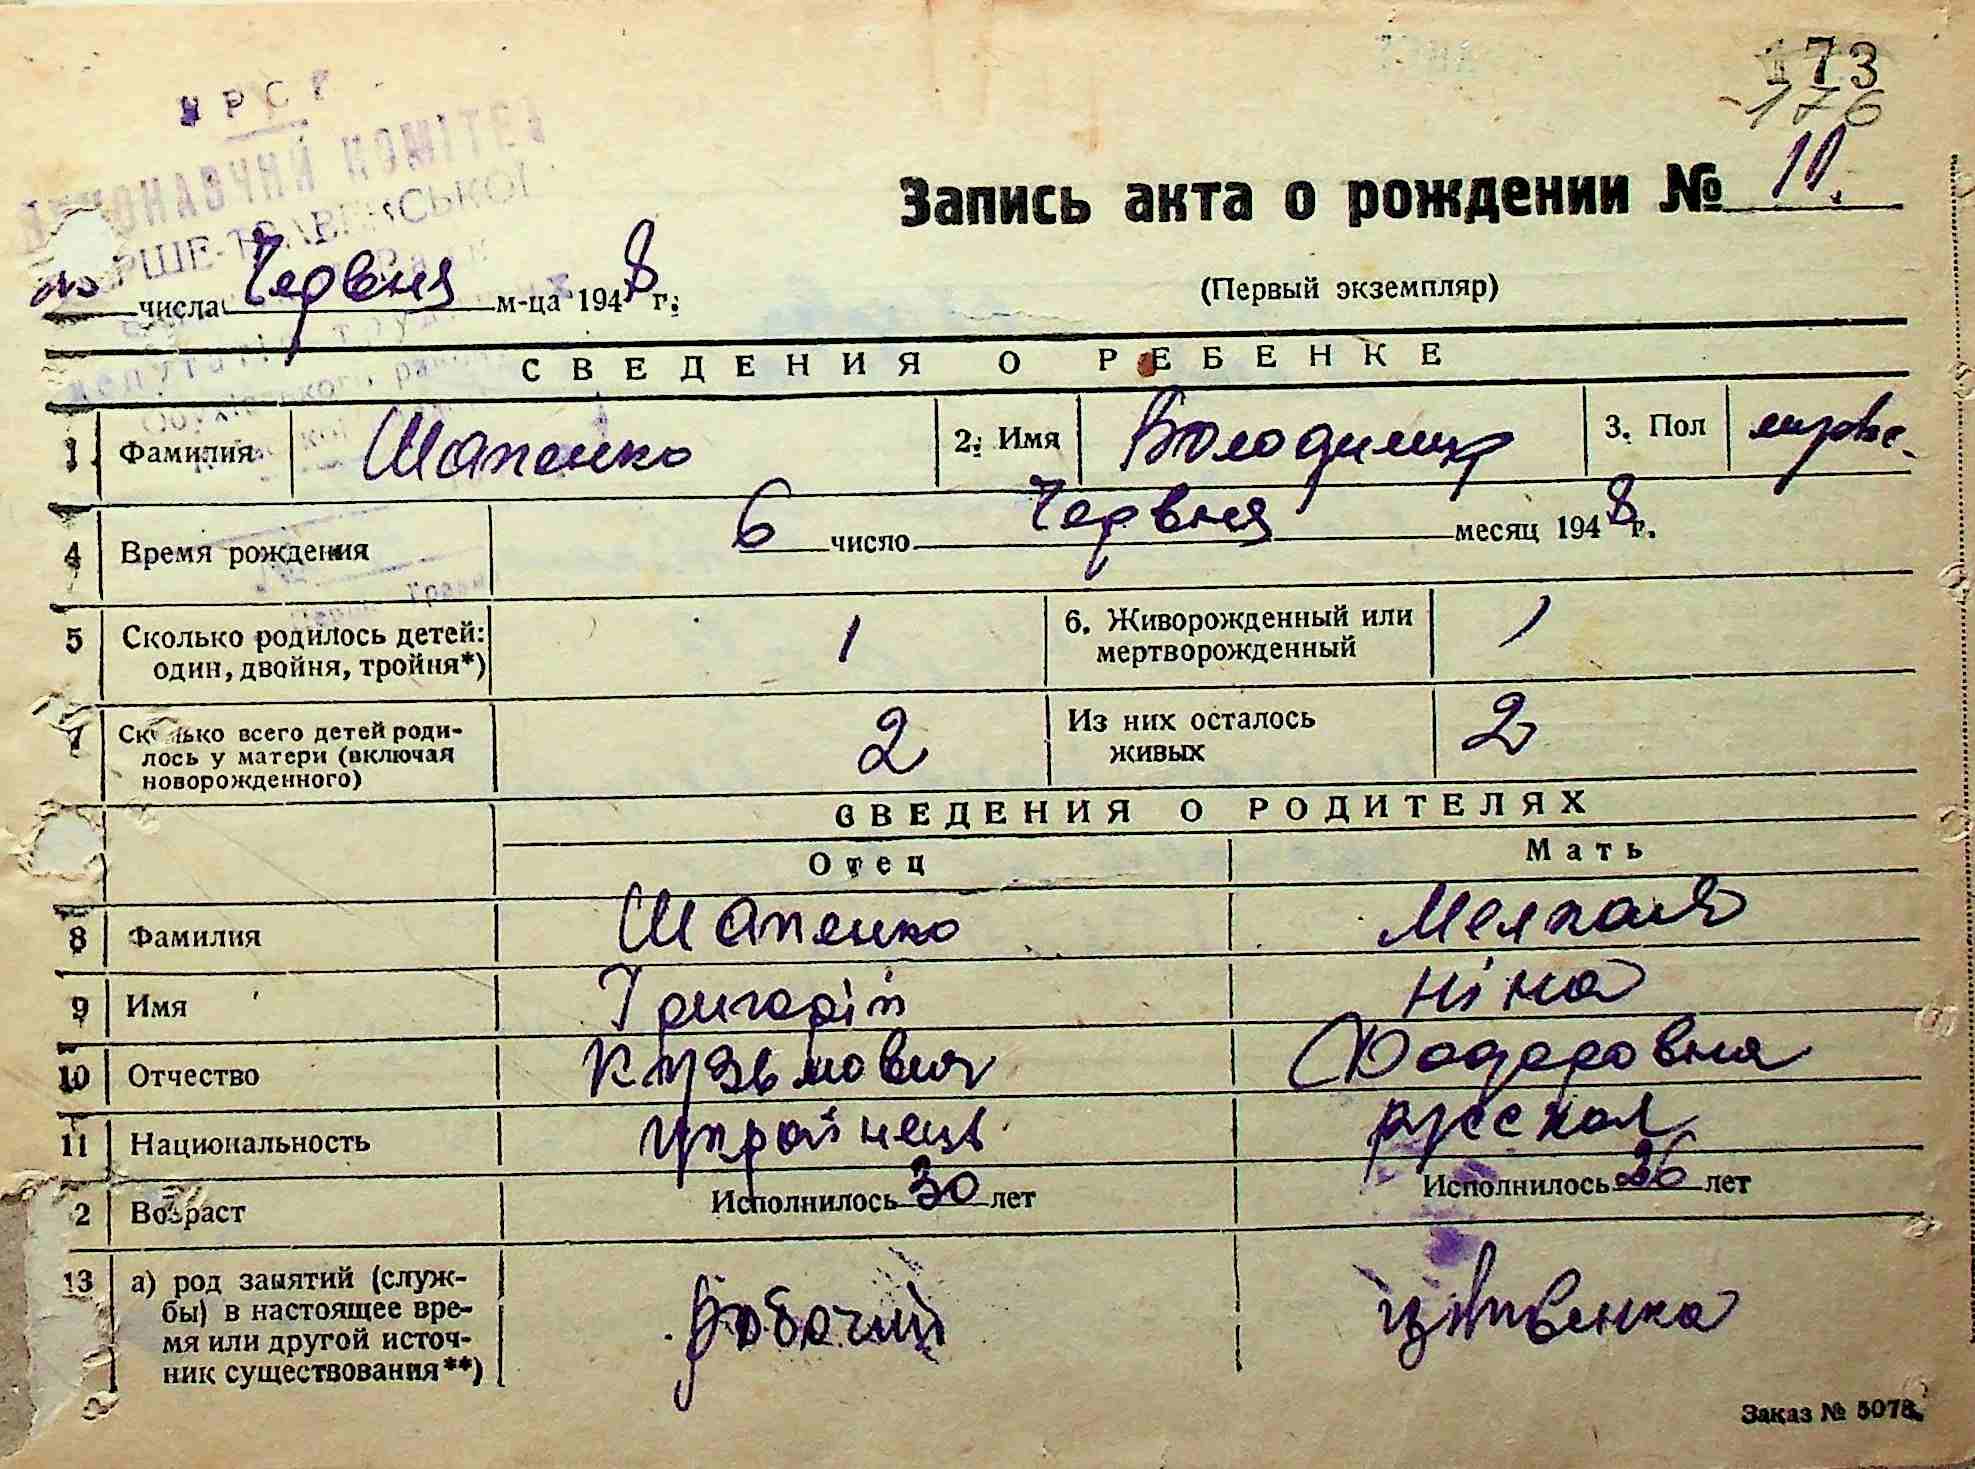 173
176
УРСР
ВИКОНАВЧИЙ КОМІТЕТ
Запись акта о рождении № 10.
числа Червня м-ца 1948 г.
(Первый экземпляр)
СВЕДЕНИЯ О РЕБЕНКЕ
1 Фамилия Шапенко 2. Имя Володимир 3. Пол
4 Время рождения 6 число Червня месяц 1948 г.
5 Сколько родилось детей: 1 6. Живорожденный или 1
один, двойня, тройня*) мертворожденный
7 Сколько всего детей роди- 2 Из них осталось 2
лось у матери (включая живых
новорожденного)
СВЕДЕНИЯ О РОДИТЕЛЯХ
Отец Мать
8 Фамилия Шапенко
9 Имя Григорій Ніна
10 Отчество Кузьмович
11 Национальность українець русская
2 Возраст Исполнилось 30 лет Исполнилось 36 лет
13 а) род занятий (служ-
бы) в настоящее вре- Робочий
мя или другой источ-
ник существования**)
Заказ № 5078.